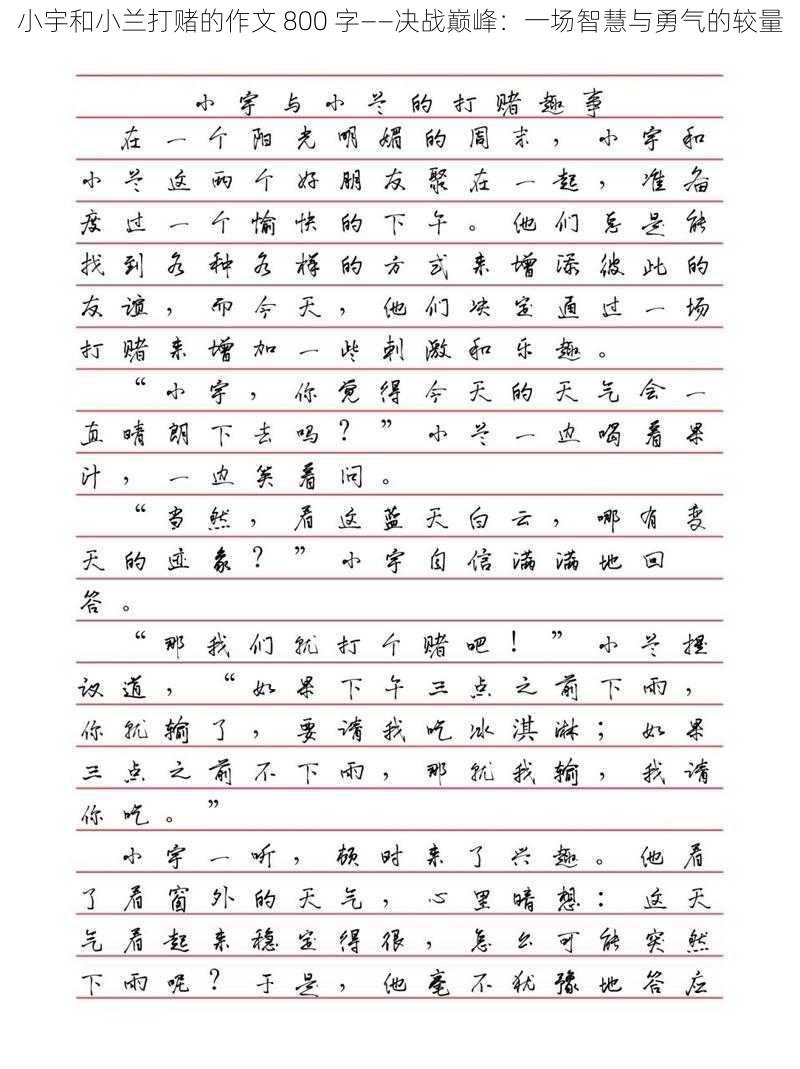 小宇和小兰打赌的作文 800 字——决战巅峰：一场智慧与勇气的较量
小宇与小兰的打赌趣事
在一个阳光明媚的周末，小宇和
小兰这两个好朋友聚在一起，准备
度过一个愉快的下午。他们总是能
找到各种各样的方式来增添彼此的
友谊，而今天，他们决定通过一场
打赌来增加一些刺激和乐趣。
“小宇，你觉得今天的天气会一
直晴朗下去吗？”小兰一边喝着果
汁，一边笑着问。
“当然，看这蓝天白云，哪有变
天的迹象？”小宇自信满满地回
答。
“那我们就打个赌吧！”小兰提
议道，“如果下午三点之前下雨，
你就输了，要请我吃冰淇淋；如果
三点之前不下雨，那就我输，我请
你吃。”
小宇一听，顿时来了兴趣。他看
了看窗外的天气，心里暗想：这天
气看起来稳定得很，怎么可能突然
下雨呢？于是，他毫不犹豫地答应